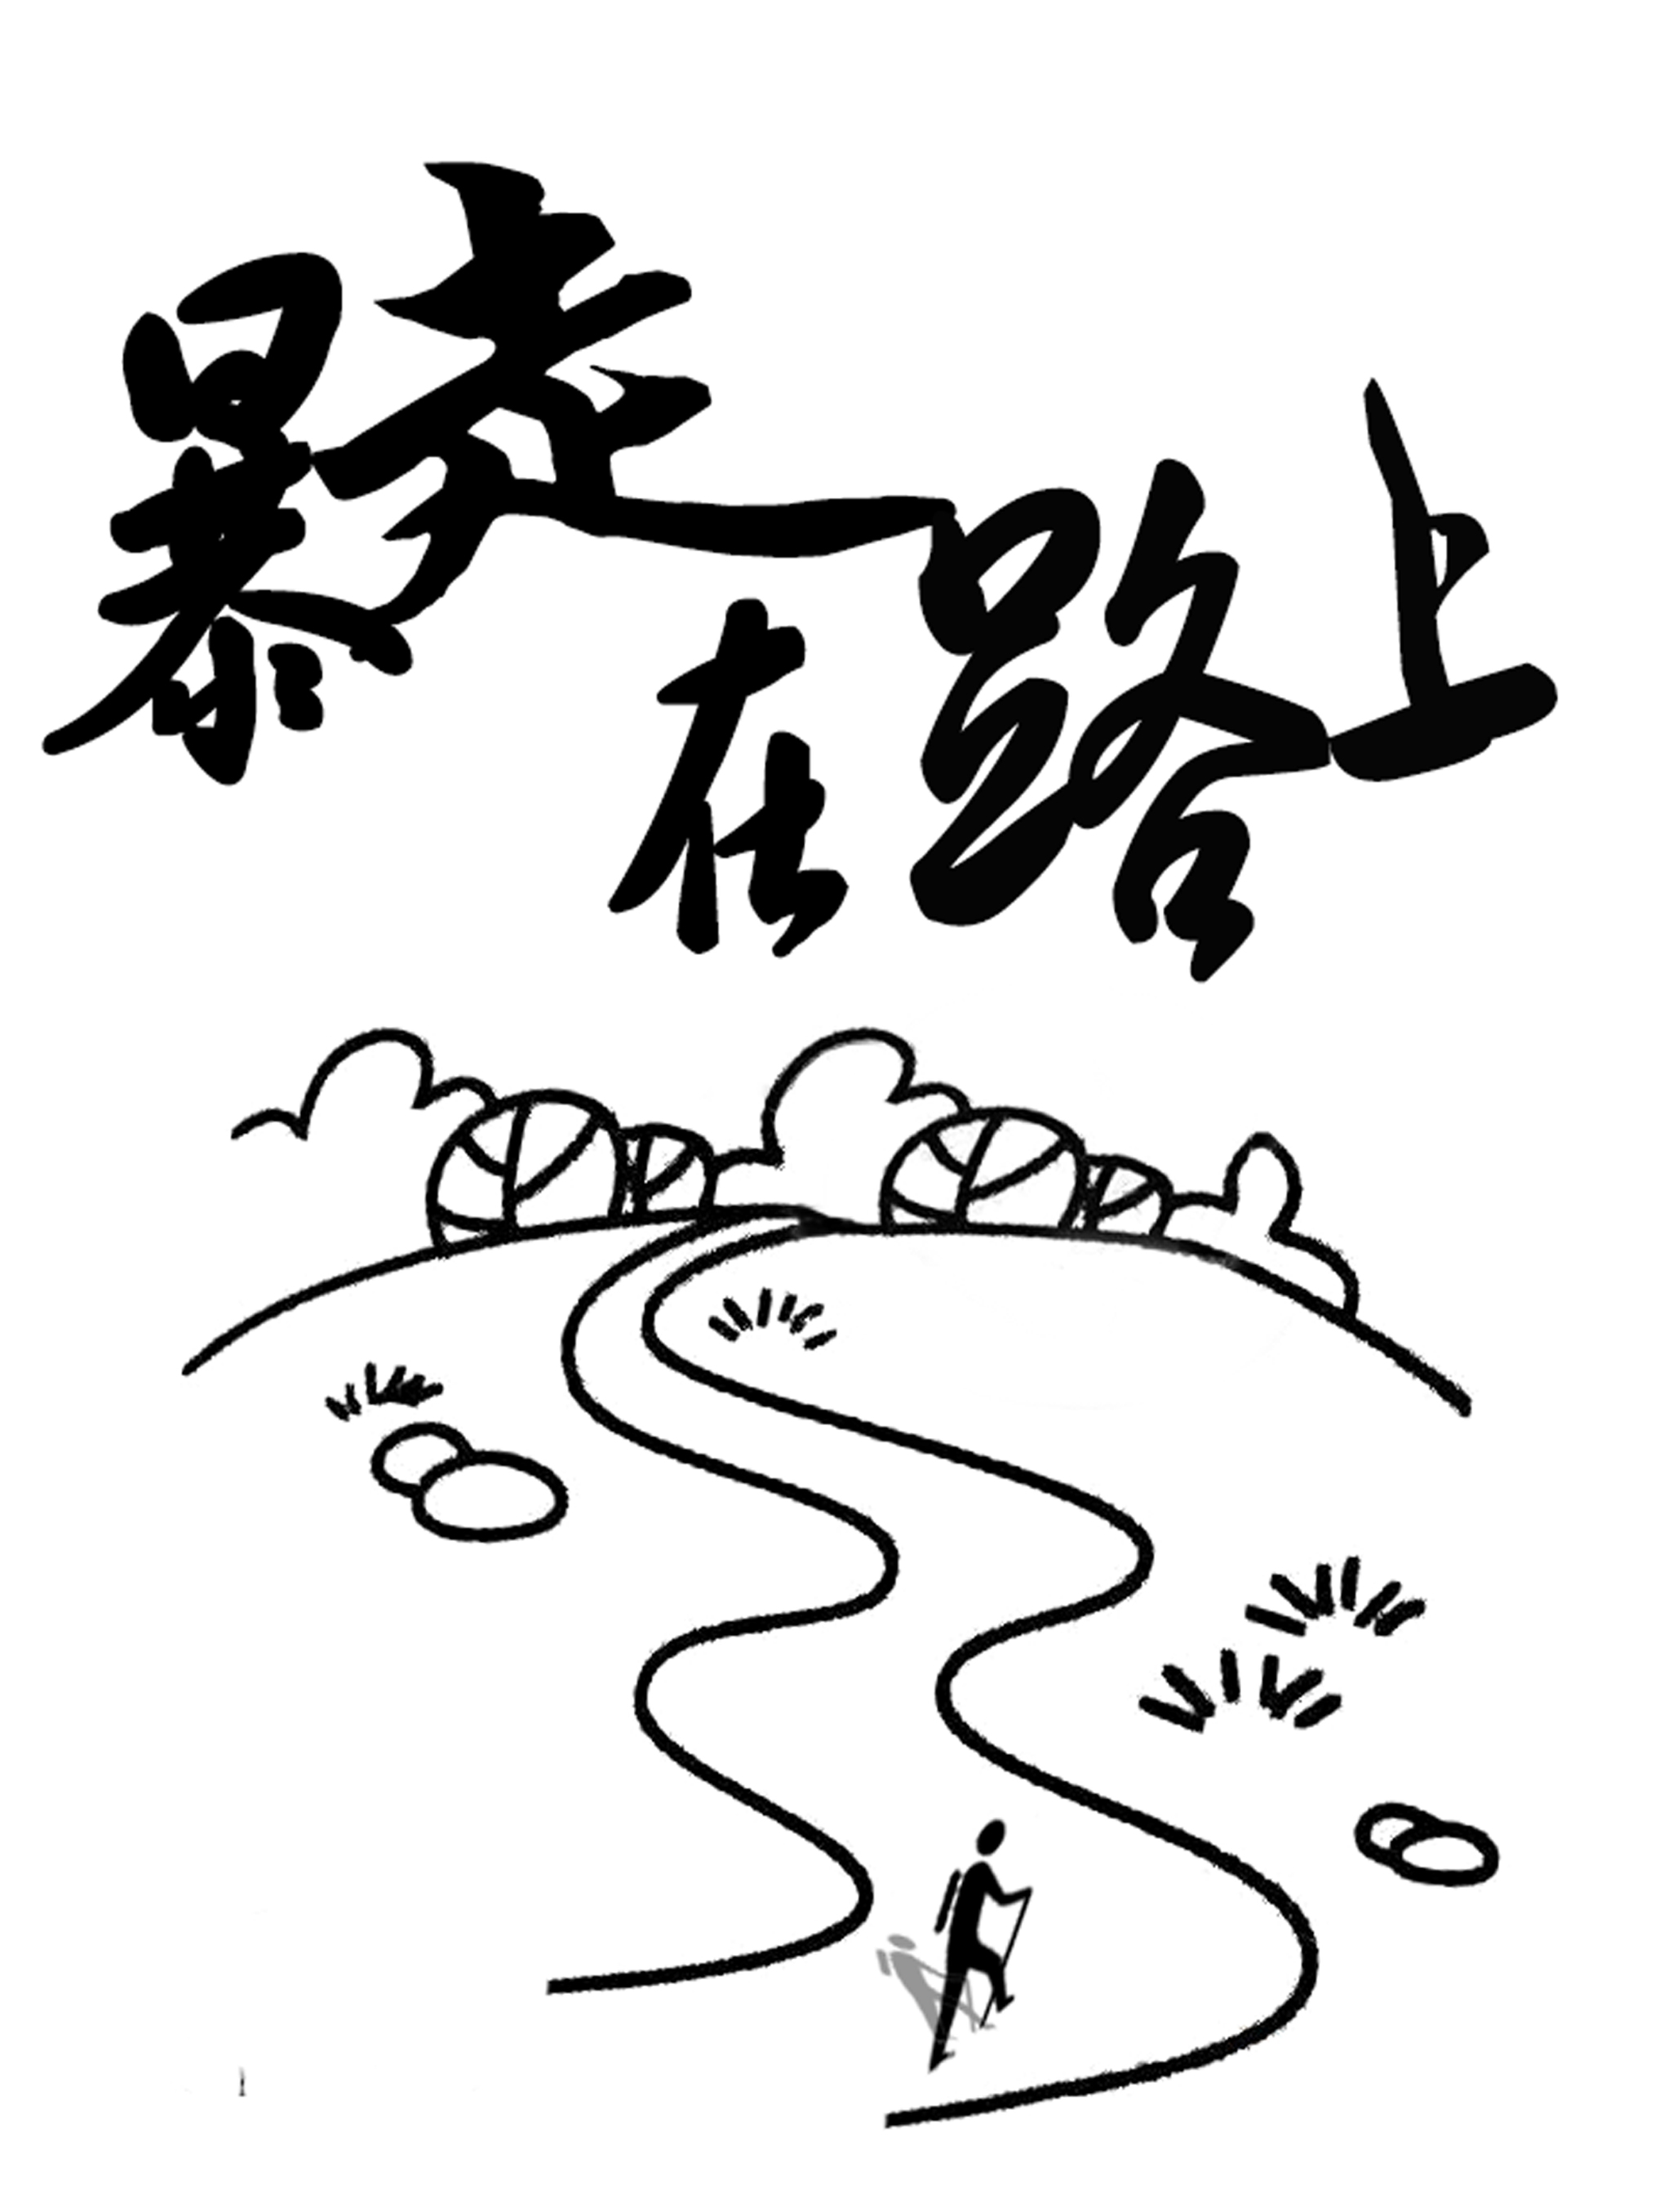 暴走
在路上